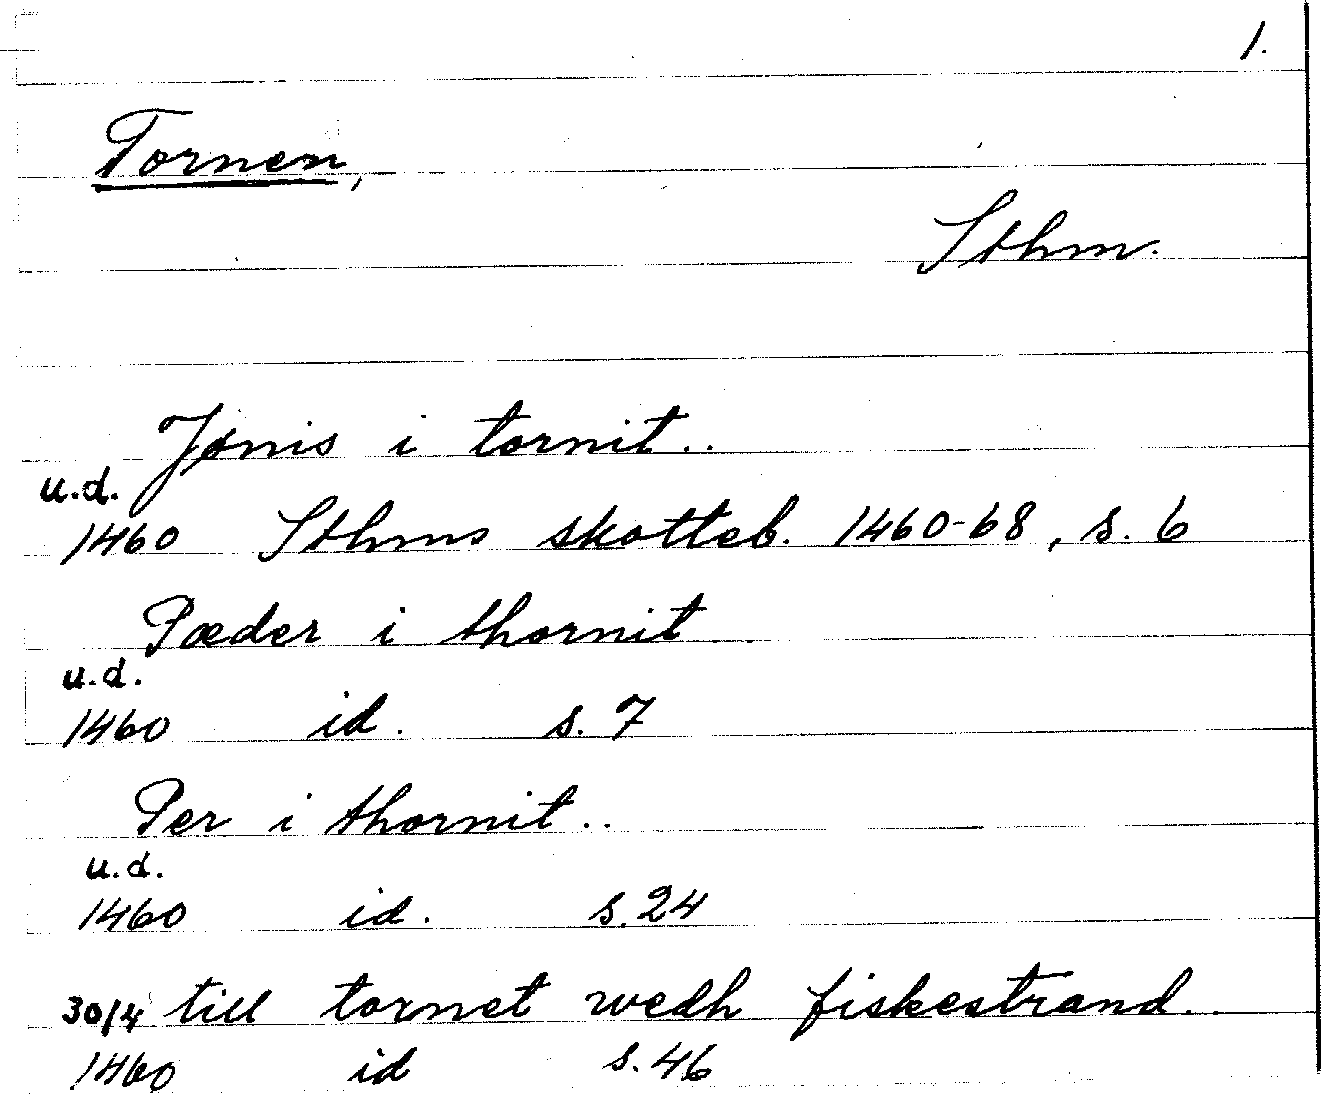 1.
Tornen,
Sthm.
Jønis i tornit..
u.d.
1460 Sthms skotteb. 1460-68, s. 6
Pæder i thornit
u.d.
1460 id. s. 7
Per i thornit..
u.d.
1460 id. s. 24
30/4 till tornet wedh fiskestrand.
1460 id s. 46